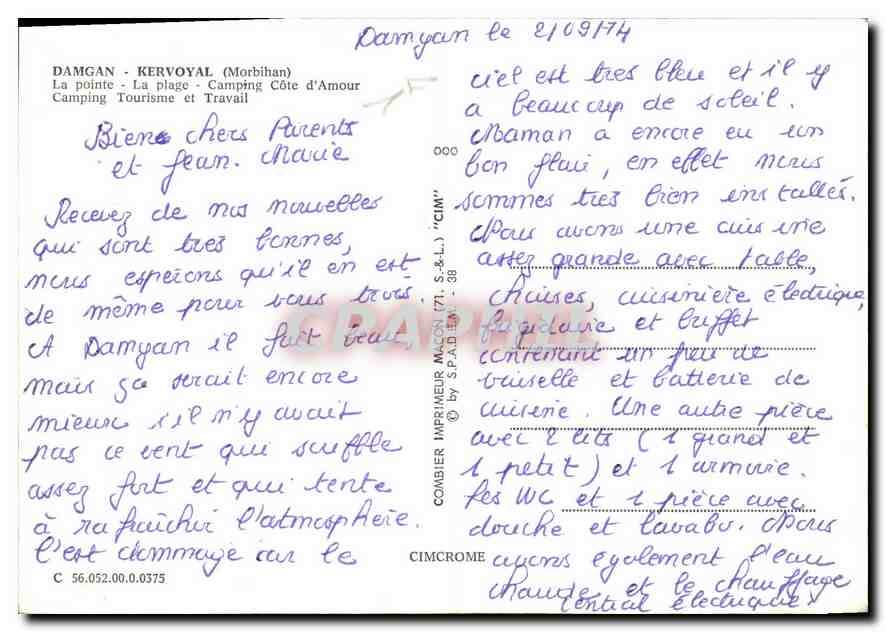 Damgan le 2/09/74
DAMGAN - KERVOYAL (Morbihan)
La pointe - La plage - Camping Côte d'Amour
Camping Tourisme et Travail
Biens chers Parents
et Jean-Marie
Recevez de nos nouvelles
qui sont très bonnes,
nous espérons qu'il en est
de même pour vous trois.
A Damgan il fait beau,
mais ça serait encore
mieux s'il n'y avait
pas ce vent qui souffle
assez fort et qui tente
à rafraîchir l'atmosphère.
C'est dommage car le
C 56.052.00.0.0375
000
COMBIER IMPRIMEUR MACON (71. S.-&-L.) "CIM"
© by S.P.A.D.E.M. - 38
CIMCROME
CPAPHIL
ciel est très bleu et il y
a beaucoup de soleil.
Maman a encore eu un
bon flair, en effet nous
sommes très bien installés.
Nous avons une cuisine
assez grande avec table,
chaises, cuisinière électrique,
frigidaire et buffet
contenant un peu de
vaisselle et batterie de
cuisine. Une autre pièce
avec 2 lits (1 grand et
1 petit) et 1 armoire.
Les WC et 1 pièce avec
douche et lavabo. Nous
avons également l'eau
chaude et le chauffage
central électrique.